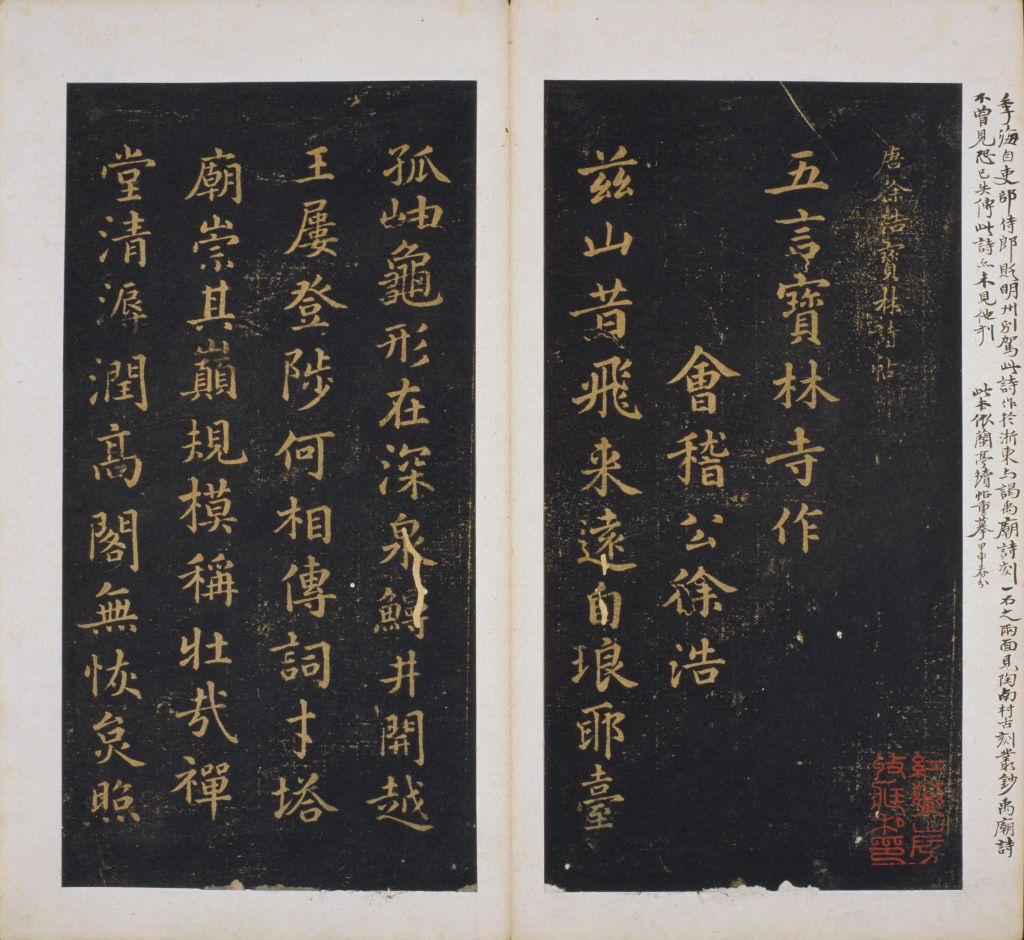 季海自吏部侍郎貶明州别駕此詩作於浙東与謁禹廟詩刻一石之兩面見陶南村古刻叢鈔禹廟詩
不曾見恐已失傳此詩亦未見他刻
此本依蘭亭續帖重摹甲申春分
唐徐浩寶林詩帖
五言寶林寺作
會稽公徐浩
兹山昔飛来遠自琅耶臺
孤岫龜形在深泉鰻井開越
王屢登陟何相傳詞才塔
廟崇其巔規模稱壯哉禪
堂清溽潤高閣無恢炱照